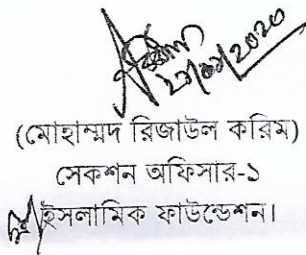 (মোহাম্মদ রিজাউল করিম)
সেকশন অফিসার-১
ইসলামিক ফাউন্ডেশন।